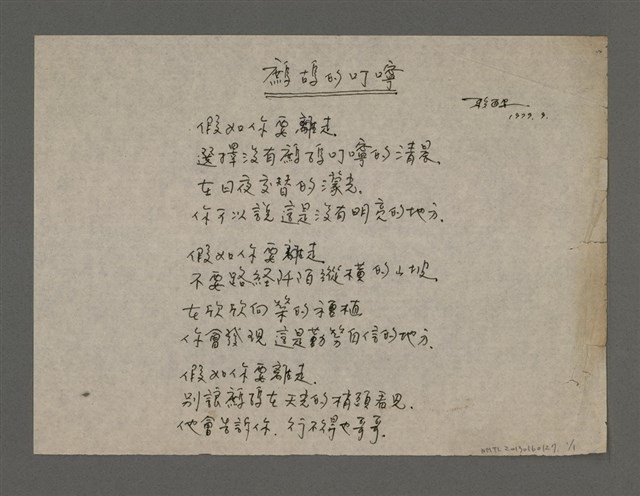 鷓鴣的叮嚀
1979.9.
假如你要離走
選擇沒有鷓鴣叮嚀的清晨
在日夜交替的濛光
你可以說 這是沒有明亮的地方.
假如你要離走
不要路經阡陌縱橫的山坡
在欣欣向榮的種植
你會發現 這是勤勞自信的地方.
假如你要離走.
別讓鷓鴣在天光的梢頭看見.
他會告訴你. 行不得也哥哥.
NMTL 20190160127. 1/1